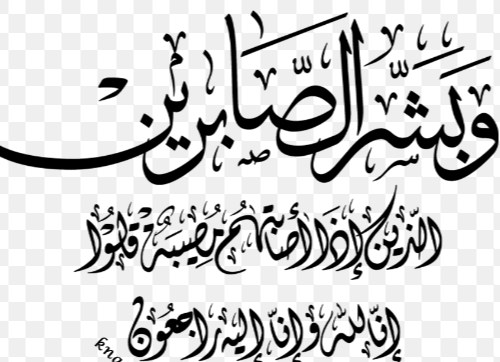 وَبَشِّرِ الصَّابِرِين
الَّذِينَ إِذَا أَصَابَتْهُم مُصِيبَةٌ قَالُوا
إِنَّا لِلَّهِ وَإِنَّا إِلَيْهِ رَاجِعُونَ